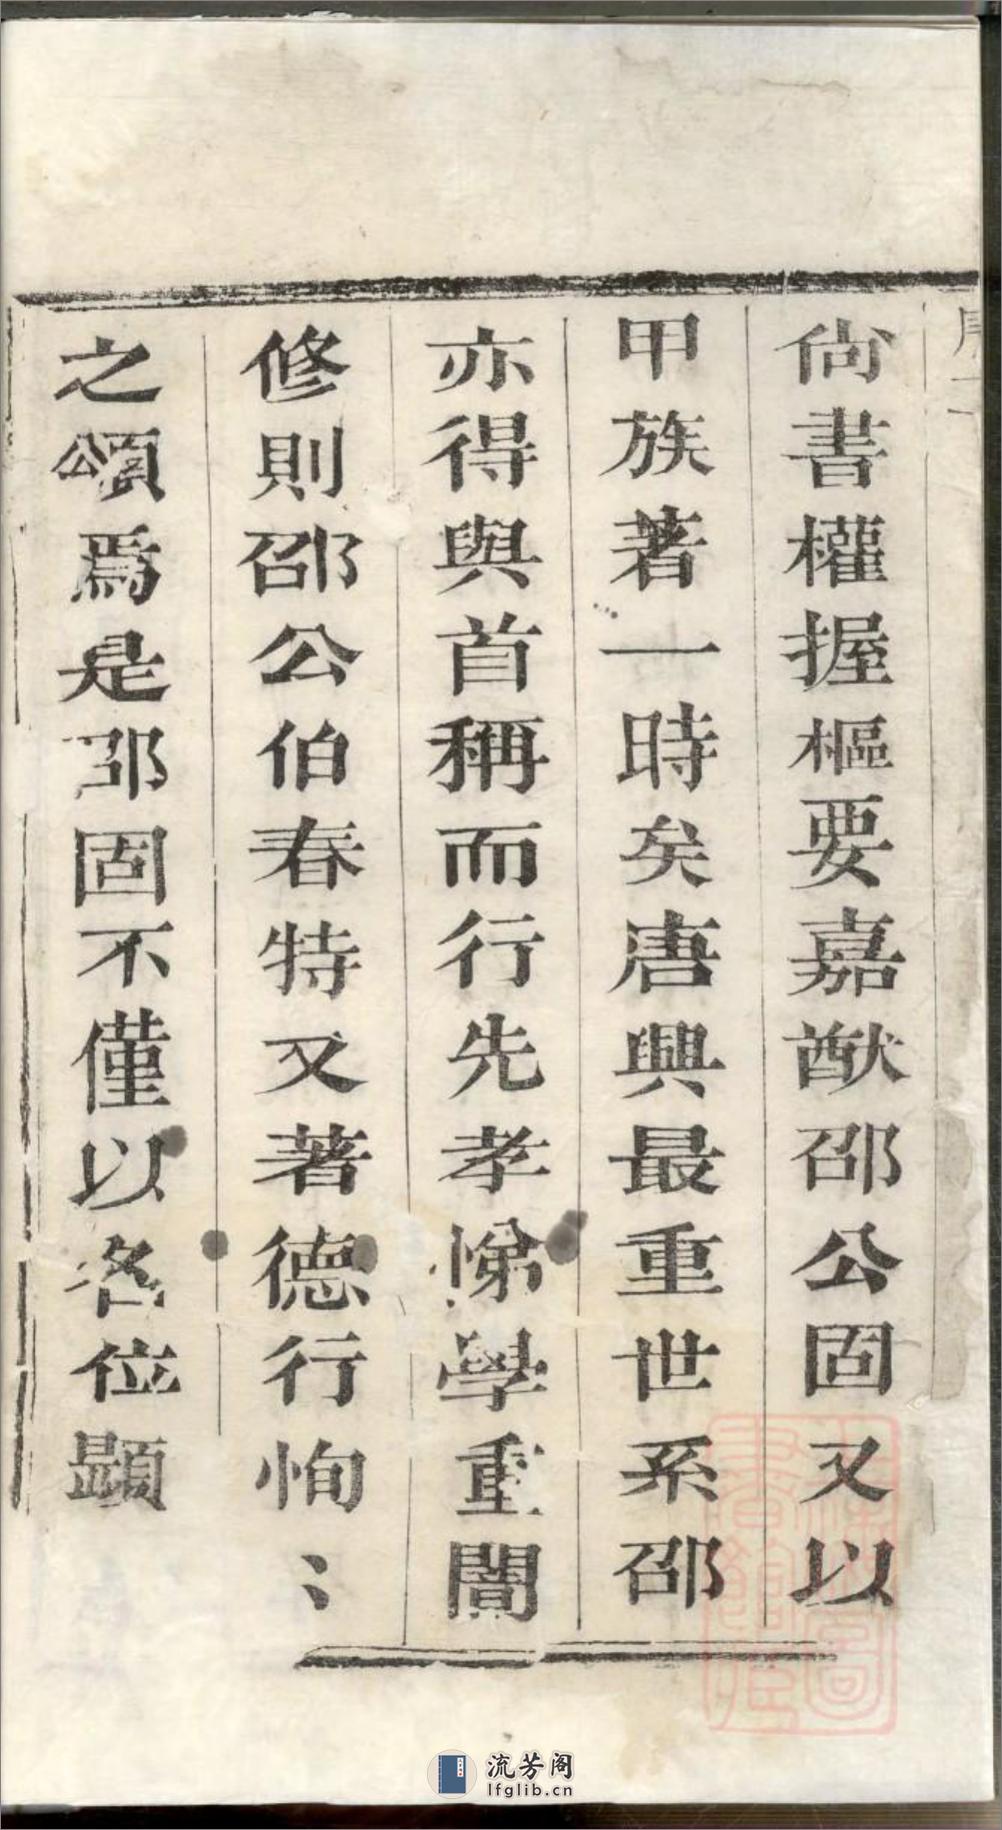 尙書權握樞要嘉猷邵公固又以
甲族著一時矣唐興最重世系邵
亦得與首稱而行先孝悌學重闇
修則邵公伯春特又著德行恂〻
之頌焉是邵固不僅以名位顯
流芳阁
lfglib.cn